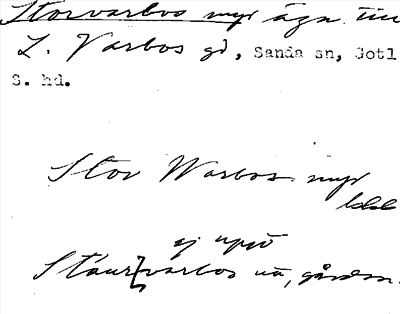 Storvarbos myr äga till
L. Varbos gd, Sanda sn, Gotl
S. hd.
Stor Warbos myr
ej uppö
Staurvarbos